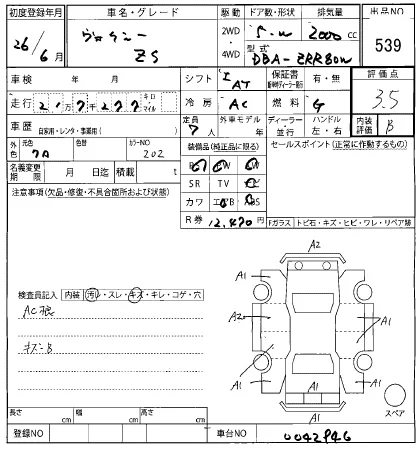 初度登録年月 車名・グレード 駆動 ドア数・形状 排気量 出品NO
26/6月 ヴォクシー ZS 2WD 4WD 5・W 2000cc 539
型式 DBA-ZRR80W
車検 年 月 シフト I AT 保証書 有・無 評価点 3.5
走行 21万7千277 キロ・マイル 冷房 AC 燃料 G
車歴 自家用・レンタ・事業用( ) 定員 7人 外車モデル 年 ディーラー 並行 ハンドル 左・右 内装評価 B
外色 元色 7A 色替 カラーNO 202 装備品(純正品に限る) セールスポイント(正常に作動するもの)
名義変更期限 月 日迄 積載 t
SR TV
注意事項(欠品・修復・不具合箇所および状態)
カワ
R券 12,470円
Fガラス トビ石・キズ・ヒビ・ワレ・リペア跡
A2
A1 A1
検査員記入 内装 汚レ・スレ・キズ・キレ・コゲ・穴
A2 A1
キズ-B
A1 A1 A1
スペア
A1
長さ cm 幅 cm 高さ cm
登録NO 車台NO 0042946